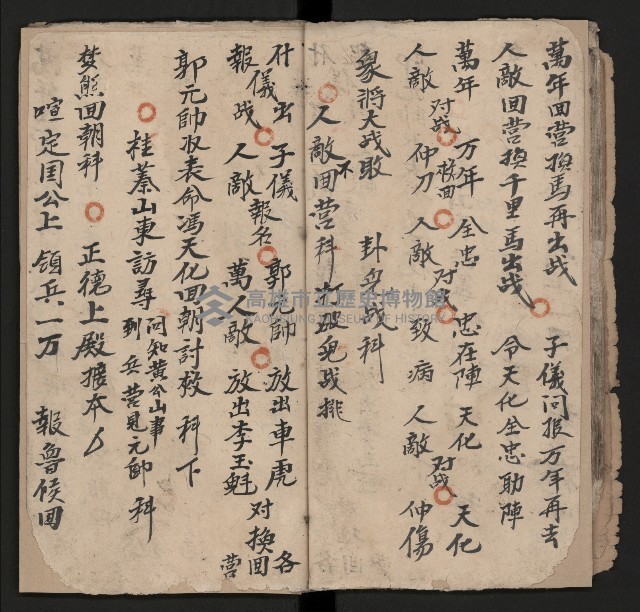 萬年回营換馬再出战 子儀问报万年再去
人敵回营換千里馬出战 令天化全忠助陣
萬年 对战 万年 全忠 对战 忠在陣 天化 对战 天化
人敵 仲刀 人敵 致病 人敵 仲傷
象將大战敗 卦免战科
人敵不回营科 打股免战排
什儀出 子儀 郭元帥 放出車虎 各
報战 人敵 報名 萬人敵 放出李玉魁 对換回营
郭元帥收表命馮天化回朝討救 科下
桂蓁山東訪尋 问知黄公山事 到兵营見元帥 科
焚熊回朝科 正德上殿接本
喧定囯公上 領兵一万 報魯候回
高雄市立歷史博物館
KAOHSIUNG MUSEUM OF HISTORY